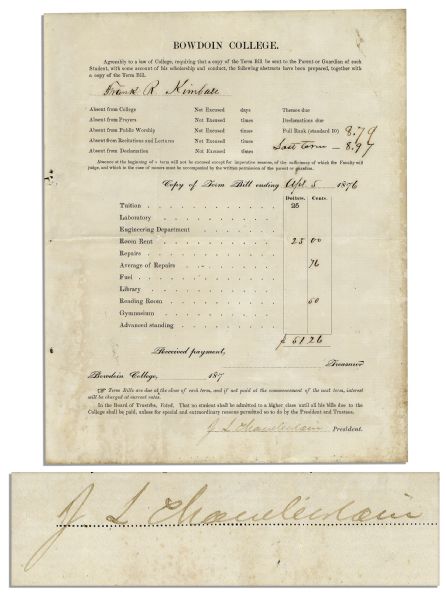 BOWDOIN COLLEGE.
Agreeably to a law of College, requiring that a copy of the Term Bill be sent to the Parent or Guardian of each
Student, with some account of his scholarship and conduct, the following abstracts have been prepared, together with
a copy of the Term Bill.
Frank R. Kimball
Absent from College Not Excused days Themes due
Absent from Prayers Not Excused times Declamations due
Absent from Public Worship Not Excused times Full Rank (standard 10) 8.79
Absent from Recitations and Lectures Not Excused times Last term — 8.97
Absent from Declamation Not Excused times
Absence at the beginning of a term will not be excused except for imperative reasons, of the sufficiency of which the Faculty will
judge, and which in the case of minors must be accompanied by the written permission of the parent or guardian.
Copy of Term Bill ending Apl 5 1876
Dollars. Cents.
Tuition 25
Laboratory
Engineering Department
Room Rent 25 00
Repairs
Average of Repairs 76
Fuel
Library
Reading Room 50
Gymnasium
Advanced standing
$ 51.26
Received payment,
Treasurer
Bowdoin College, 187
Term Bills are due at the close of each term, and if not paid at the commencement of the next term, interest
will be charged at current rates.
In the Board of Trustees, Voted, That no student shall be admitted to a higher class until all his bills due to the
College shall be paid, unless for special and extraordinary reasons permitted so to do by the President and Trustees.
J L Chamberlain President.
J L Chamberlain